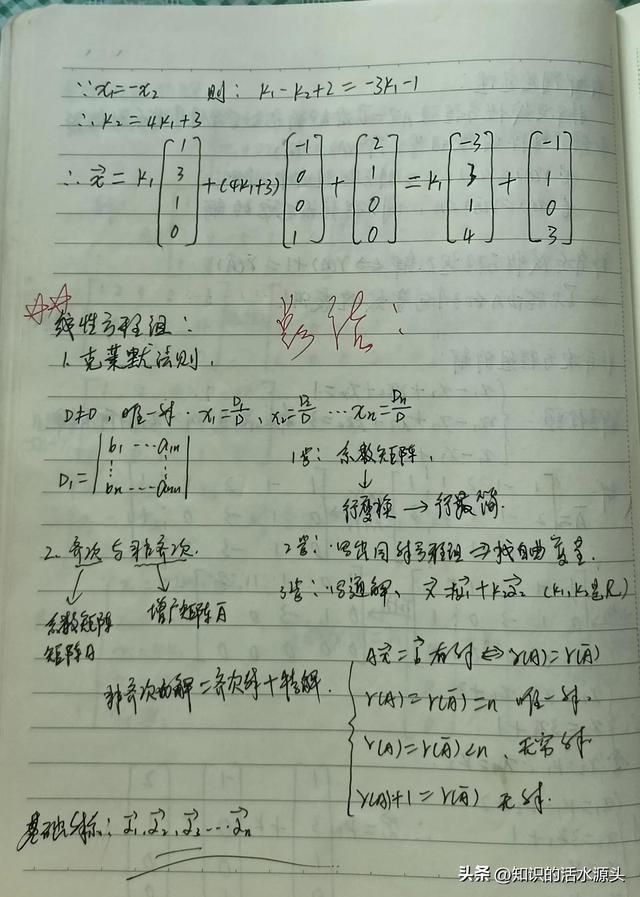 ∵ x₁=-x₂ 则: k₁-k₂+2=-3k₁-1
∴ k₂=4k₁+3
∴ x⃗=k₁[1 3 1 0]+(4k₁+3)[-1 0 0 1]+[2 1 0 0]=k₁[-3 3 1 4]+[-1 1 0 3]
线性方程组: 总结:
1. 克莱默法则.
D≠0, 唯一解. x₁=D₁/D, x₂=D₂/D ⋯ xₙ=Dₙ/D
D₁=|b₁ ⋯ a₁ₙ ⋮ ⋮ bₙ ⋯ aₙₙ|
1步: 系数矩阵.
↓
行变换 → 行最简.
2. 齐次与非齐次.
系数矩阵
矩阵A
增广矩阵A̅
2步: 写出同解方程组 ⇒ 找自由变量.
3步: 写通解, (k₁,k₂是R)
非齐次的解=齐次解+特解.
Ax⃗=b⃗ 有解 ⇔ r(A)=r(A̅)
r(A)=r(A̅)=n 唯一解.
r(A)=r(A̅)<n, 无穷解
r(A)+1=r(A̅) 无解.
基础解系: α⃗₁,α⃗₂,α⃗₃⋯α⃗ₙ
头条 @知识的活水源头